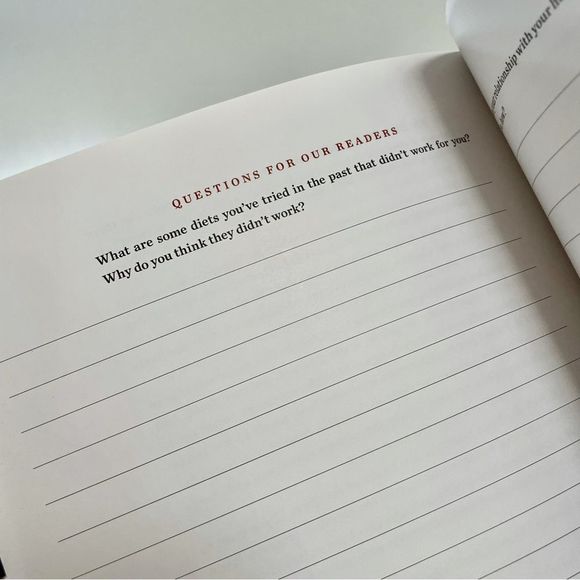 QUESTIONS FOR OUR READERS
What are some diets you've tried in the past that didn't work for you?
Why do you think they didn't work?
relationship with your